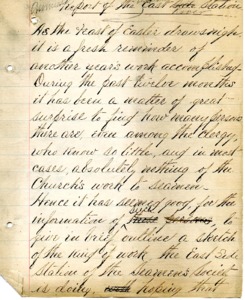 Report of the East Side Station
As the Feast of Easter draws nigh
it is a fresh reminder of
another year's work accomplished
During the past twelve months
it has been a matter of great
surprise to find how many persons
there are, even among the clergy,
who know so little, and in most
cases, absolutely nothing of the
Church's work to seamen.
Hence it has seemed good, for the
information of such to
give in brief outline a sketch
of the kind of work the East Side
Station of the Seamen's Society
is doing. hoping that